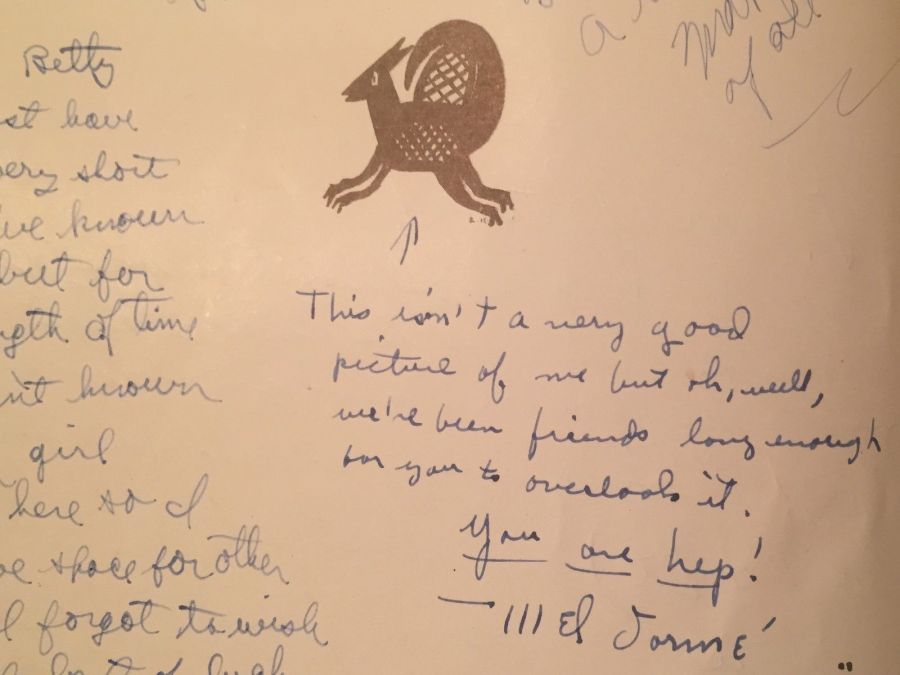 Betty
st have
very short
've known
but for
ngth of time
n't known
girl
here so I
ve space for other
I forgot to wish
best of luck
a
of all
This isn't a very good
picture of me but oh, well,
we've been friends long enough
for you to overlook it.
You are hep!
— Mel Tormé